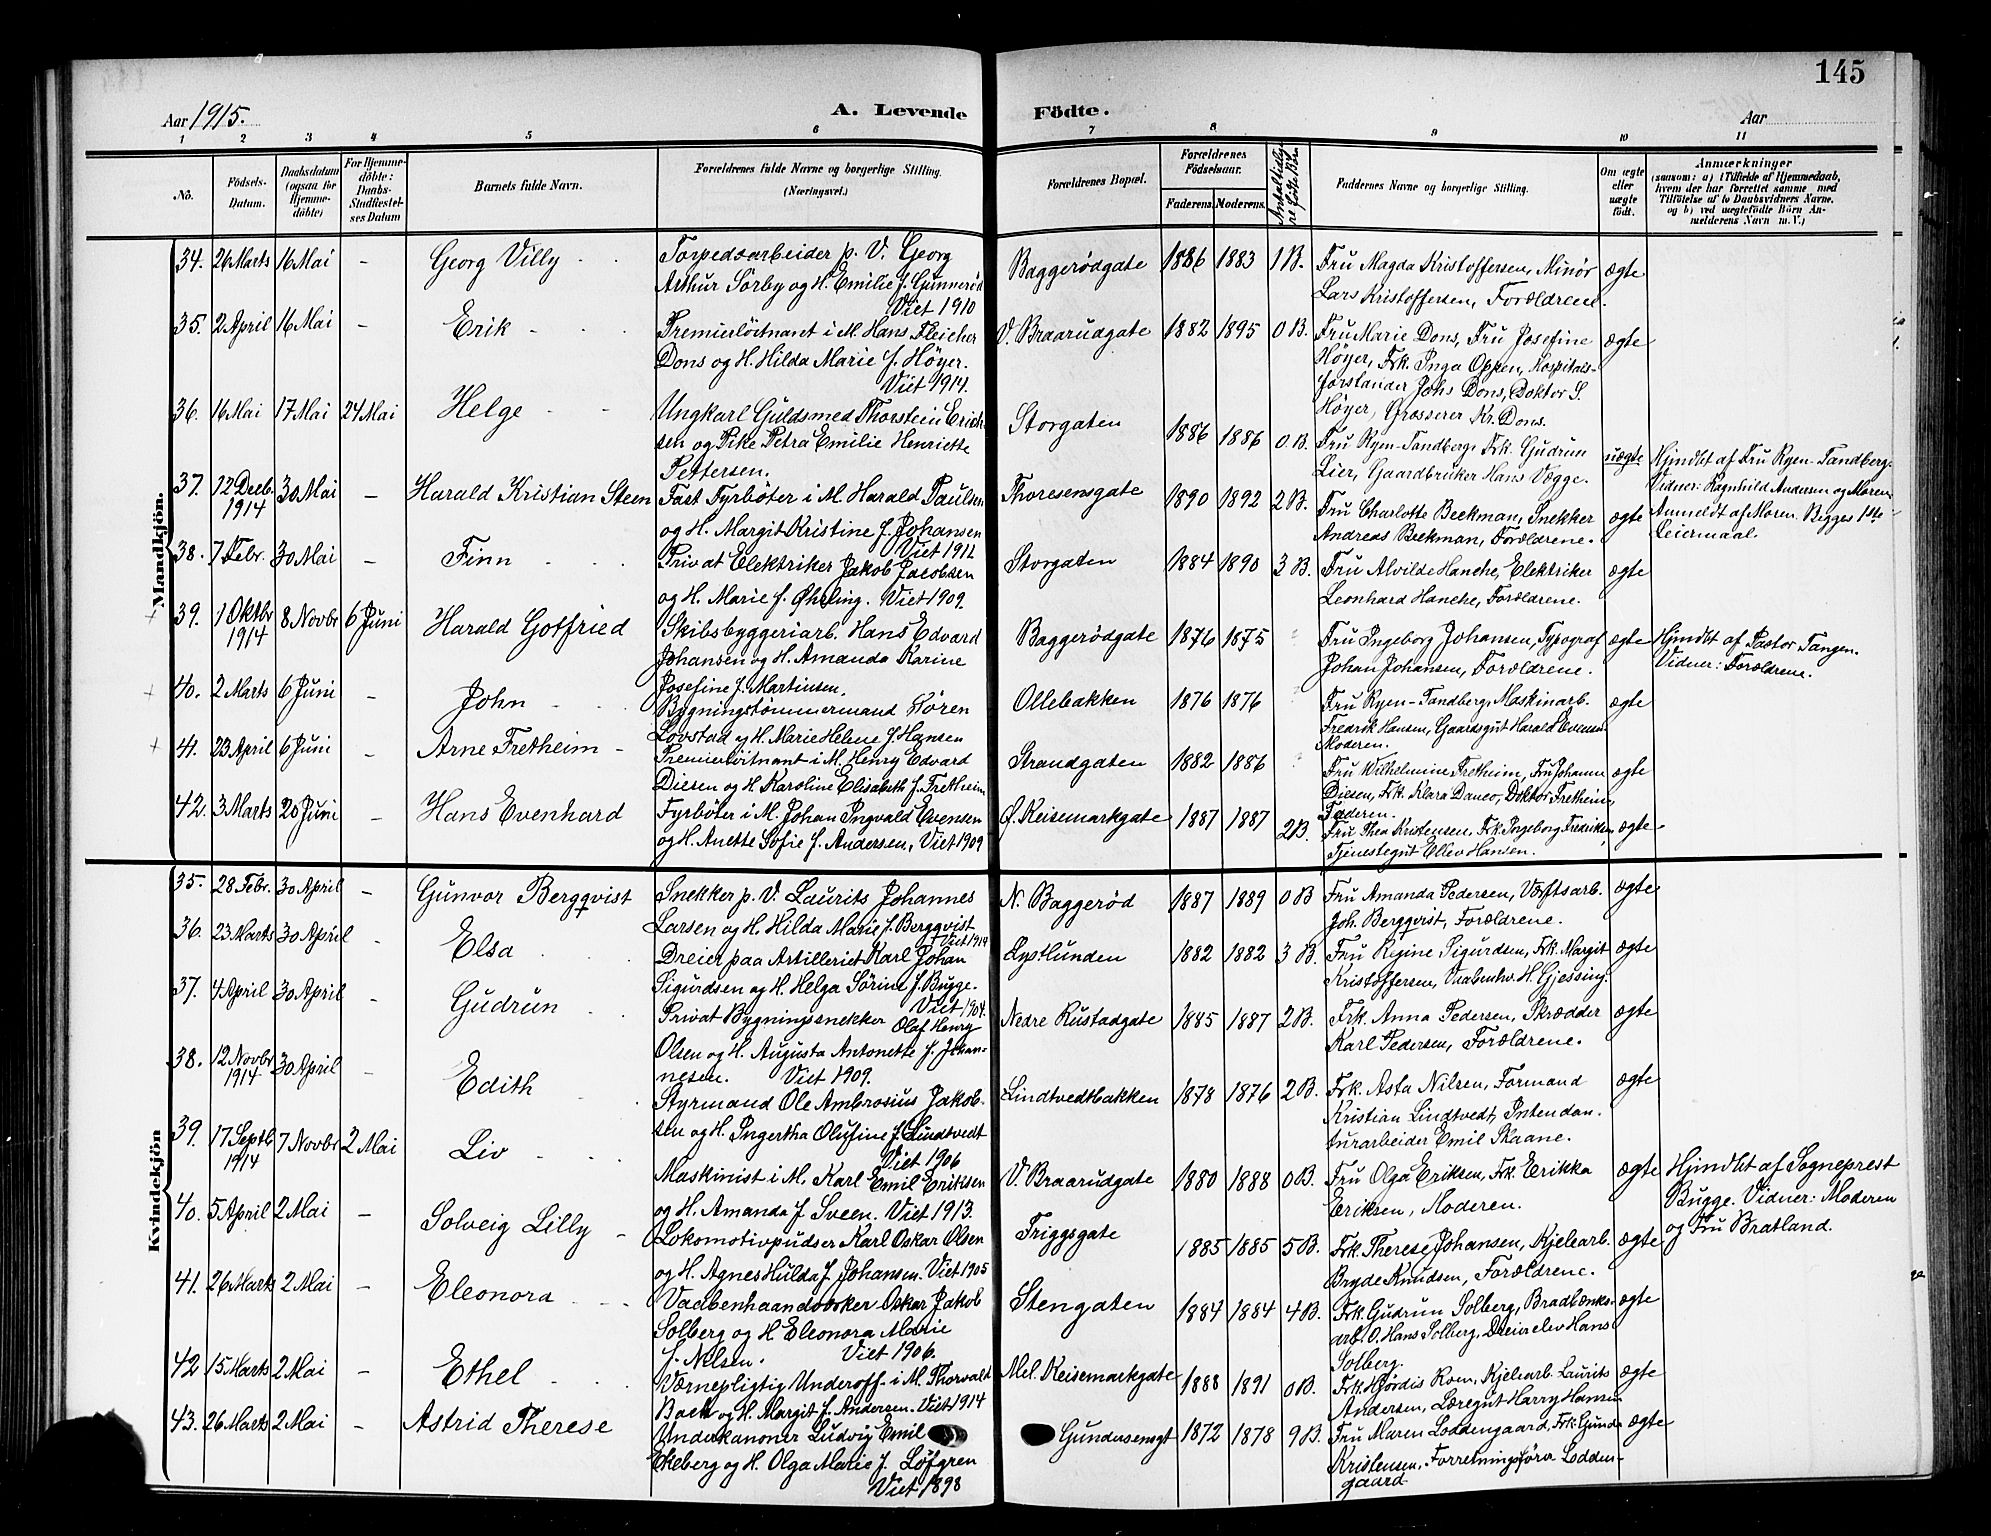 145
Aar 1915. A. Levende Födte. Aar
1 2 3 4 5 6 7 8 9 10 11
No. Födsels-Datum. Daabsdatum (ogsaa for Hjemmedöbte) For Hjemmedöbte: Daabs-Stadfæstelses Datum Barnets fulde Navn. Forældrenes fulde Navne og borgerlige Stilling. (Næringsvei.) Forældrenes Bopæl. Forældrenes Födselsaar. Faderens. Moderens. Faddernes Navne og borgerlige Stilling. Om ægte eller uægte födt. Anmærkninger (saasom: a) i Tilfælde af Hjemmedaab, hvem der har forrettet samme med Tilföielse af to Daabsvidners Navne, og b) ved uægtefödte Börn Anmelderens Navn m. V.)
Mandkjön.
34. 26 Marts 16 Mai - Georg Villy - Torpedoarbeider p. V. Georg
Arthur Sörby og H. Emilie f. Gunneröd
Viet 1910
Baggerödgate 1886 1883 1 B. Fru Magda Kristoffersen, Minör
Lars Kristoffersen, Forældrene. ægte
35. 2 April 16 Mai - Erik - Premierlöitnant i M. Hans Fleicher
Dons og H. Hilda Marie f. Höyer.
Viet 1914.
V. Braarudgate 1882 1895 0 B. Fru Marie Dons, Fru Josefine
Höyer, Frk. Inga Oppen, Hospitals-
forstander Johs Dons, Doktor S.
Höyer, Grosserer Kr. Dons. ægte
36. 16 Mai 17 Mai 24 Mai Helge - Ungkarl Guldsmed Thorstein Erich-
sen og Pike Petra Emilie Henriette
Pettersen.
Storgaten 1886 1886 0 B. Fru Ryen-Tandberg, Frk. Gudrun
Lier, Gaardbruker Hans Vægge. uægte
Hjmdbt af Fru Ryen-Tandberg.
Vidner: Ragnhild Andersen og Moren
Anmeldt af Moren. Begges 1ste
Leiermaal.
37. 12 Decb. 1914 30 Mai - Harald Kristian Steen Fast Fyrböter i M. Harald Paulsen
og H. Margit Kristine f. Johansen
Viet 1911
Thoresensgate 1890 1892 2 B. Fru Charlotte Beckman, Snekker
Andreas Beckman, Forældrene. ægte
38. 7 Febr. 30 Mai - Finn - Privat Elektriker Jakob Jacobsen
og H. Marie f. Øhrling. Viet 1909.
Storgaten 1884 1890 3 B. Fru Alvilde Hanche, Elektriker
Leonhard Hanche, Forældrene. ægte
39. 1 Oktbr 1914 8 Novbr 6 Juni Harald Gotfried Skibsbyggeriarb. Hans Edvard
Johansen og H. Amanda Karine
Josefine f. Martinsen.
Baggerödgate 1876 1875 Fru Ingeborg Johansen, Typograf
Johan Johansen, Forældrene. ægte
Hjmdbt af Pastor Tangen.
Vidner: Forældrene.
40. 2 Marts 6 Juni - John - Bygningstömmermand Sören
Lövstad og H. Marie Helene f. Hansen
Ollebakken 1876 1876 Fru Ryen-Tandberg, Maskinarb.
Fredrik Hansen, Gaardsgut Harald Evensen
Moderen. ægte
41. 23 April 6 Juni - Arne Fretheim - Premierlöitnant i M. Henry Edvard
Diesen og H. Karoline Elisabeth f. Fretheim
Strandgaten 1882 1886 Fru Wilhelmine Fretheim, Fru Johanne
Diesen, Frk. Klara Daneo, Doktor Fretheim,
Faderen. ægte
42. 3 Marts 20 Juni - Hans Evenhard Fyrböter i M. Johan Ingvald Evensen
og H. Anette Sofie f. Andersen, Viet 1909
Ø. Keisemarkgate 1887 1887 2 B. Fru Thea Kristensen, Frk. Ingeborg Fredriksen,
Tjenestegut Ellev Hansen. ægte
Kvindekjön
35. 28 Febr. 30 April - Gunvor Bergqvist Snekker p. V. Laurits Johannes
Larsen og H. Hilda Marie f. Bergqvist
Viet 1914
N. Baggeröd 1887 1889 0 B Fru Amanda Pedersen, Værftsarb.
Joh. Bergqvist, Forældrene. ægte
36. 23 Marts 30 April - Elsa - Dreier paa Artilleriet Karl Johan
Sigurdsen og H. Helga Sörine f. Bugge.
Viet 1904.
Lystlunden 1882 1882 3 B. Fru Regine Sigurdsen, Frk. Margit
Kristoffersen, Vaabenhv. H. Gjessing. ægte
37. 4 April 30 April - Gudrun - Privat Bygningssnekker Olaf Henry
Olsen og H. Augusta Antonette f. Johan-
nesen. Viet 1909.
Nedre Rustadgate 1885 1887 2 B. Frk. Anna Pedersen, Skrædder
Karl Pedersen, Forældrene. ægte
38. 12 Novbr 1914 30 April - Edith - Styrmand Ole Ambrosius Jakob-
sen og H. Ingertha Olufine f. Lindtvedt
Viet 1906
Lindtvedtbakken 1878 1876 2 B. Frk. Asta Nilsen, Formand
Kristian Lindtvedt, Intendan-
turarbeider Emil Skaane. ægte
39. 17 Septb 1914 7 Novbr 2 Mai Liv - Maskinist i M. Karl Emil Eriksen
og H. Amanda f. Sveen. Viet 1913.
V. Braarudgate 1880 1888 0 B. Fru Olga Eriksen, Frk. Erikka
Eriksen, Moderen. ægte
Hjmdbt af Sogneprest
Bugge. Vidner: Moderen
og Fru Bratland.
40. 5 April 2 Mai - Solveig Lilly - Lokomotivpudser Karl Oskar Olsen
og H. Agnes Hulda f. Johansen. Viet 1905
Friggsgate 1885 1885 5 B. Frk. Therese Johansen, Kjelearb.
Bryde Knudsen, Forældrene. ægte
41. 26 Marts 2 Mai - Eleonora - Vaabenhaandværker Oskar Jakob
Solberg og H Eleonora Marie
f. Nilsen. Viet 1906.
Stengaten 1884 1884 4 B. Frk. Gudrun Solberg, Bradbænks-
arb. O. Hans Solberg, Dreierelev Hans
Solberg. ægte
42 15 Marts 2 Mai - Ethel - Værnepligtig Underoff. i M. Thorvald
Bach og H. Margit f. Andersen. Viet 1914
Mel. Keisemarkgate 1888 1891 0 B. Frk. Hjördis Roen, Kjelearb Laurits
Andersen, Læregut Harry Hansen ægte
43. 26 Marts 2 Mai - Astrid Therese Underkanoner Ludvig Emil
Ekeberg og H. Olga Marie f. Löfgren
Viet 1898
Gundersensgt 1872 1878 9 B. Fru Maren Loddengaard, Frk. Gunda
Kristensen, Forretningsförer Lodden-
gaard ægte